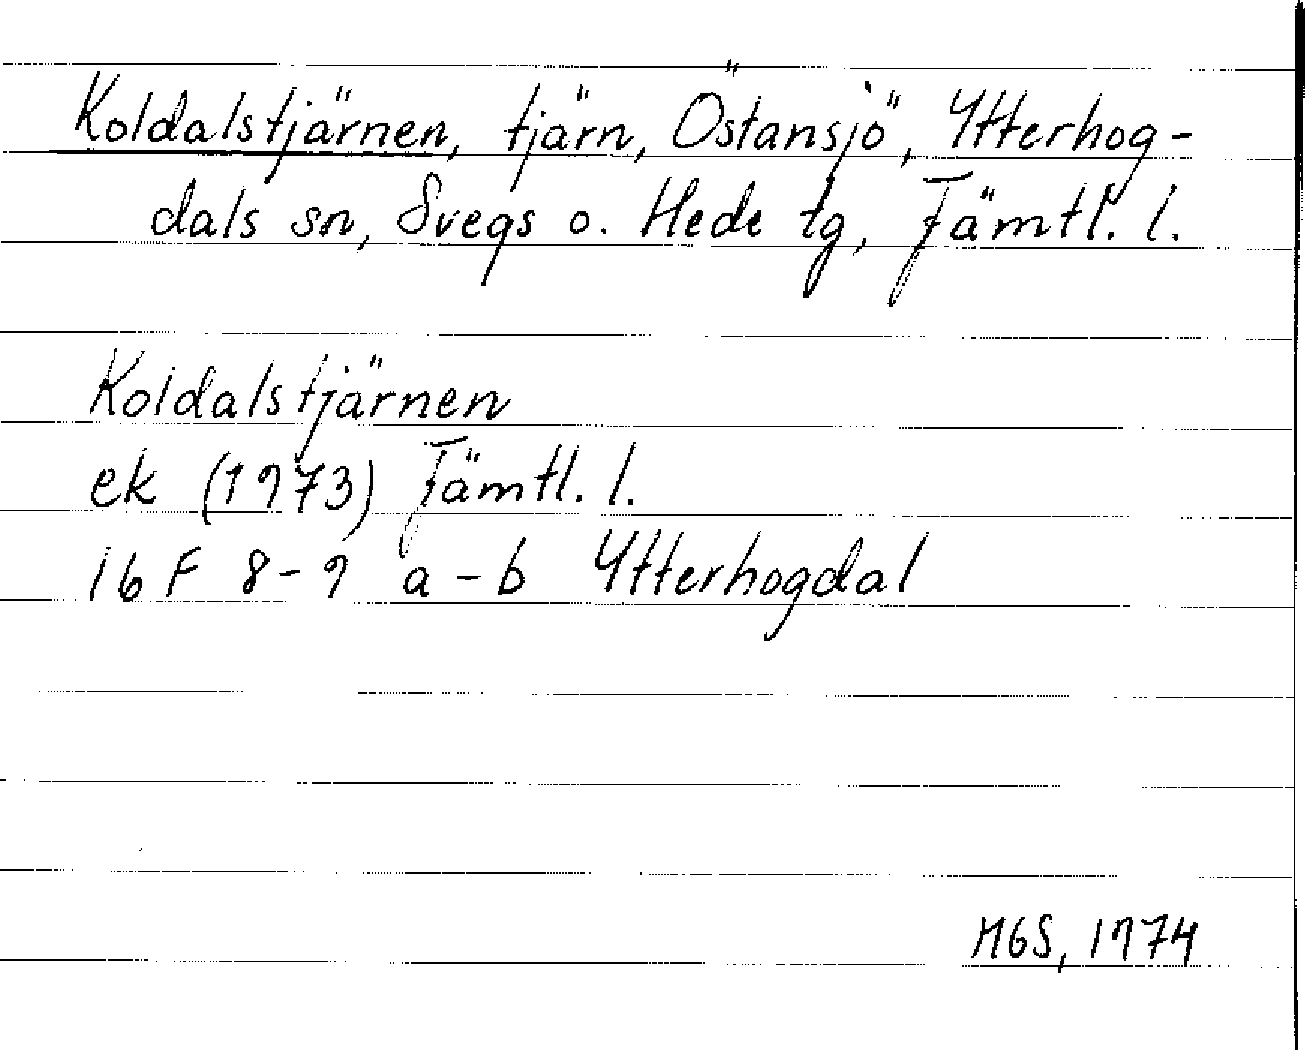 Koldalstjärnen, tjärn, Östansjö, Ytterhog-
dals sn, Svegs o. Hede tg, Jämtl. l.
Koldalstjärnen
ek (1973) Jämtl. l.
16F 8-9 a-b Ytterhogdal
MGS, 1974